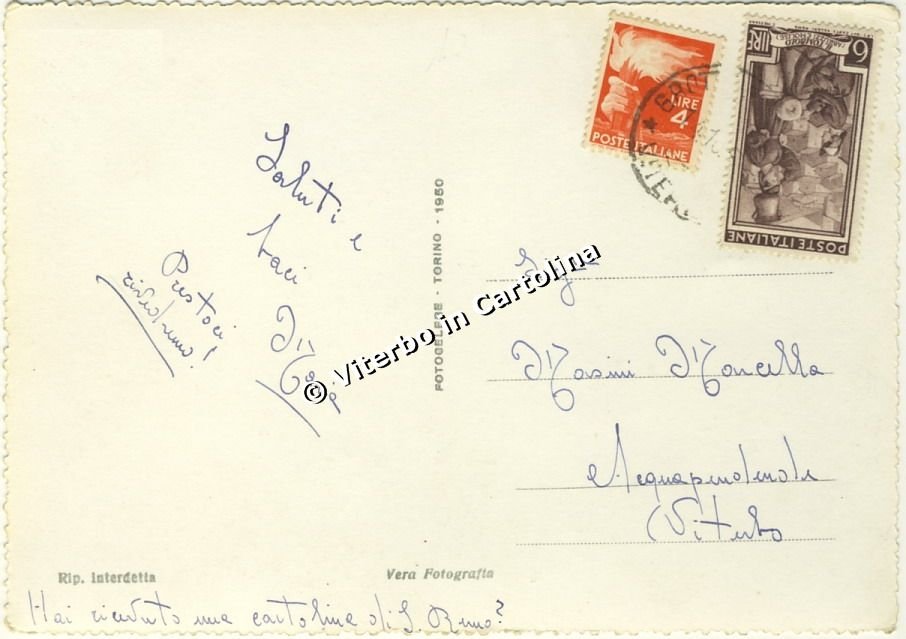 LIRE
4
POSTE ITALIANE
LIRE
6
POSTE ITALIANE
Saluti e
baci
Presto ci
rivedremo!
FOTOCELERE - TORINO - 1950
Sig.na
Masini Marcella
Acquapendente
Viterbo
© Viterbo in Cartolina
Rip. interdetta
Vera Fotografia
Hai ricevuto una cartolina di S. Remo?